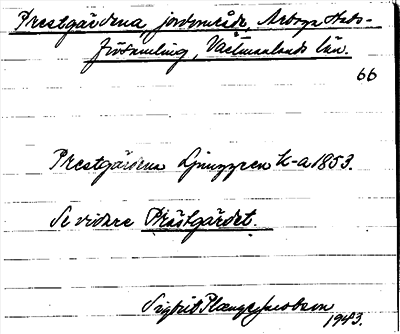 Prestgärdena, jordområde, Arboga stads-
församling, Västmanlands län.
66
Prestgärdena Ljunggren k-a 1853.
Se vidare Prästgärdet.
Sigbrit Plænge Jacobson
1943.